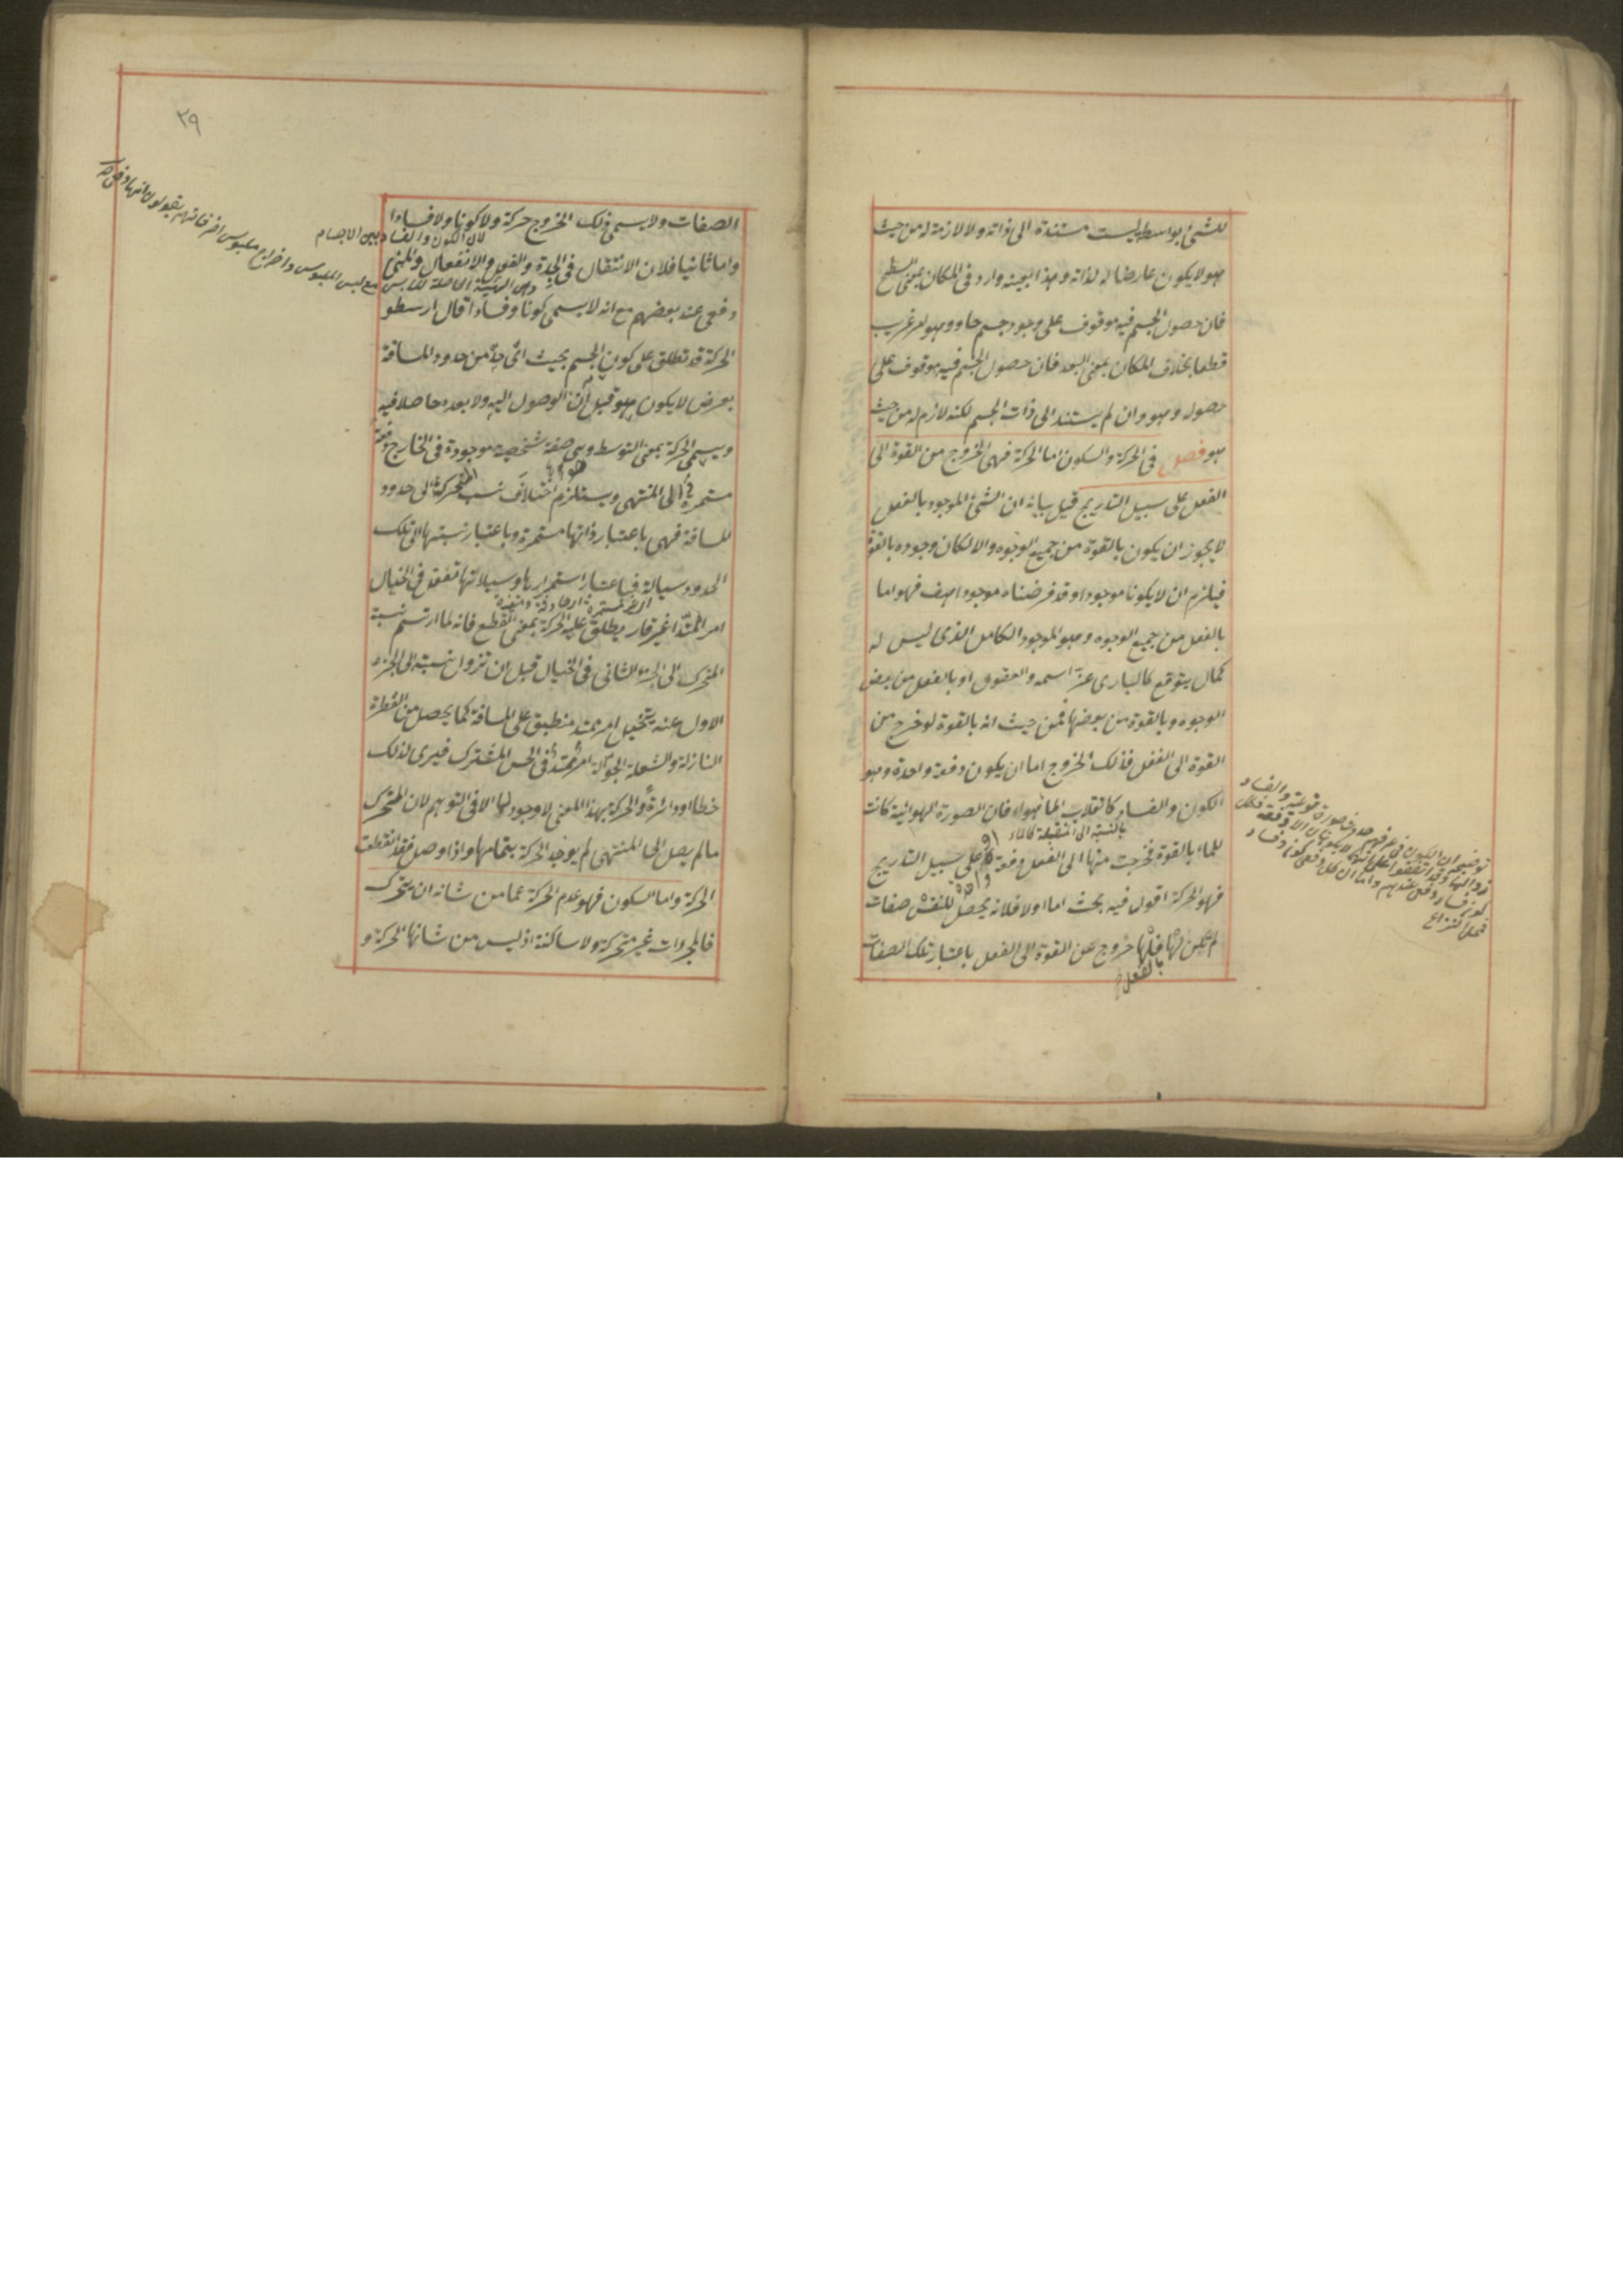 للشئ بواسطة ليست مستندة الى ذاته ولا لازمة له من حيث
هو لا يكون عارضا له لذاته وهذا بعينه وارد فى المكان بمعنى السطح
فان حصول الجسم فيه موقوف على وجود جسم حاو وهو امر غريب
قطعا بخلاف المكان بمعنى البعد فان حصول الجسم فيه موقوف على
حصوله وهو وان لم يستند الى ذات الجسم لكنه لازم له من حيث
هو فصل فى الحركة والسكون اما الحركة فهى الخروج من القوة الى
الفعل على سبيل التدريج قيل بيانه ان الشئ الموجود بالفعل
لا يجوز ان يكون بالقوة من جميع الوجوه والا لكان وجوده بالقوة
فيلزم ان لا يكون موجودا وقد فرضناه موجودا هف فهو اما
بالفعل من جميع الوجوه وهو الموجود الكامل الذى ليس له
كمال يتوقع كالبارى عز اسمه والعقول او بالفعل من بعض
الوجوه وبالقوة من بعضها فمن حيث انه بالقوة لو خرج من
القوة الى الفعل فذلك الخروج اما ان يكون دفعة واحدة وهو
الكون والفساد كانقلاب الماء هواء فان الصورة الهوائية كانت
بالنسبة الى المنقلبة كالماء
للماء بالقوة فخرجت منها الى الفعل دفعة او على سبيل التدريج
فهو الحركة اقول فيه بحث اما اولا فلانه يحصل للنفس صفات
لم يكن لها قبلها خروج عن القوة الى الفعل باعتبار تلك الصفات
بالفعل
توضيحه ان الكون فى عرفهم حدوث صورة نوعية والفساد
زوالها وقد اتفقوا على انهما لا يكونان الا دفعة فكل
كون وفساد دفعى عندهم واما ان كل دفعى كون وفساد
فمحل النزاع
٢٩
الصفات ولا يسمى ذلك الخروج حركة ولا كونا ولا فسادا
لان الكون والفساد بين الاجسام
واما ثانيا فلان الانتقال فى الجدة والفعل والانفعال والمتى
وهى الهيئة الحاصلة للابس مع لبس الملبوس واخراج ملبوس اخر فانهم يقولون انها دفعى
دفعى عند بعضهم مع انه لا يسمى كونا وفسادا قال ارسطو
الحركة قد تطلق على كون الجسم بحيث اى حد من حدود المسافة
يعرض لا يكون هو قبل آن الوصول اليه ولا بعده حاصلا فيه
ويسمى الحركة بمعنى التوسط وهى صفة شخصية موجودة فى الخارج دفعة
مستمرة الى المنتهى ويستلزم اختلاف نسب المتحرك الى حدود
المسافة فهى باعتبار ذاتها مستمرة وباعتبار نسبتها الى تلك
الحدود سيالة فباعتبار استمرارها وسيلانها تفعل فى الخيال
امرا ممتدا غير قار يطلق عليه الحركة بمعنى القطع فانه لما ارتسم نسبة
المتحرك الى الجزء الثانى فى الخيال قبل ان تزول نسبته الى الجزء
الاول عنه يتخيل امر ممتد منطبق على المسافة كما يحصل من القطرة
النازلة والشعلة الجوالة امر ممتد فى الحس المشترك فيرى لذلك
خطا او دائرة والحركة بهذا المعنى لا وجود لها الا فى التوهم لان المتحرك
ما لم يصل الى المنتهى لم يوجد الحركة بتمامها واذا وصل فقد انقطعت
الحركة واما السكون فهو عدم الحركة عما من شانه ان يتحرك
فالمجردات غير متحركة ولا ساكنة اذ ليس من شانها الحركة و